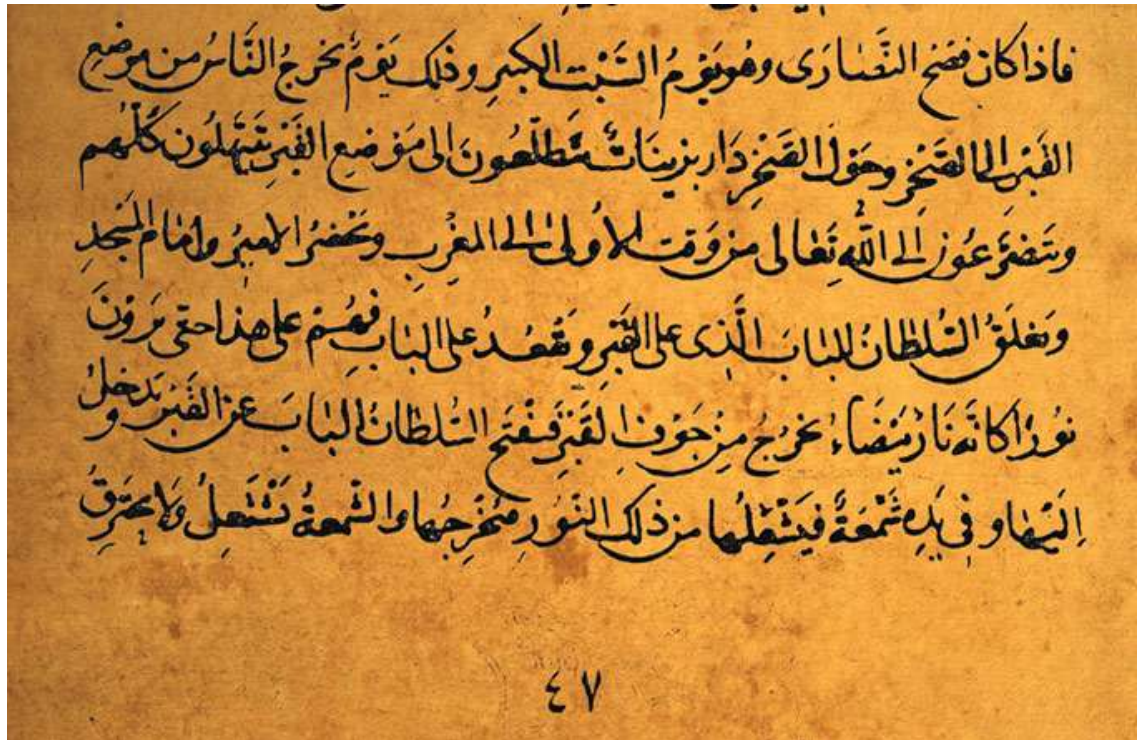 فاذا كان فصح النصارى وهو يوم السَّبت الكبير وذلك يَوم يخرج النَّاسُ من موضع
القبر الى الصَّخر وحَوْل الصَّخر دَار بزينات مُتطلّعُونَ الى مَوْضع القَبْر يَبتهلُون كُلّهم
ويتضرّعُون الى اللّه تعَالى من وَقت الأولىٰ الى المغْرِب ويَحضرُ الامير وامَام المسْجد
ويغلقُ السُّلطانُ البابَ الَّذي على القَبْر ويَقعُدُ على البَاب فهُمْ على هذا حتى يَرَوْنَ
نُورًا كانّه نَارٌ بَيْضَاءُ يخرُجُ مِنْ جَوْفِ القَبْر فيَفتَح السُّلطانُ البابَ عن القَبْر ويَدخلُ
اِليْها وفي يَدِهِ شَمْعَةٌ فيَشْعِلُها من ذلك النّور ويُخْرِجُها والشَّمعةُ تَشْتَعِلُ وَلا يحتَرِقُ
٤٧